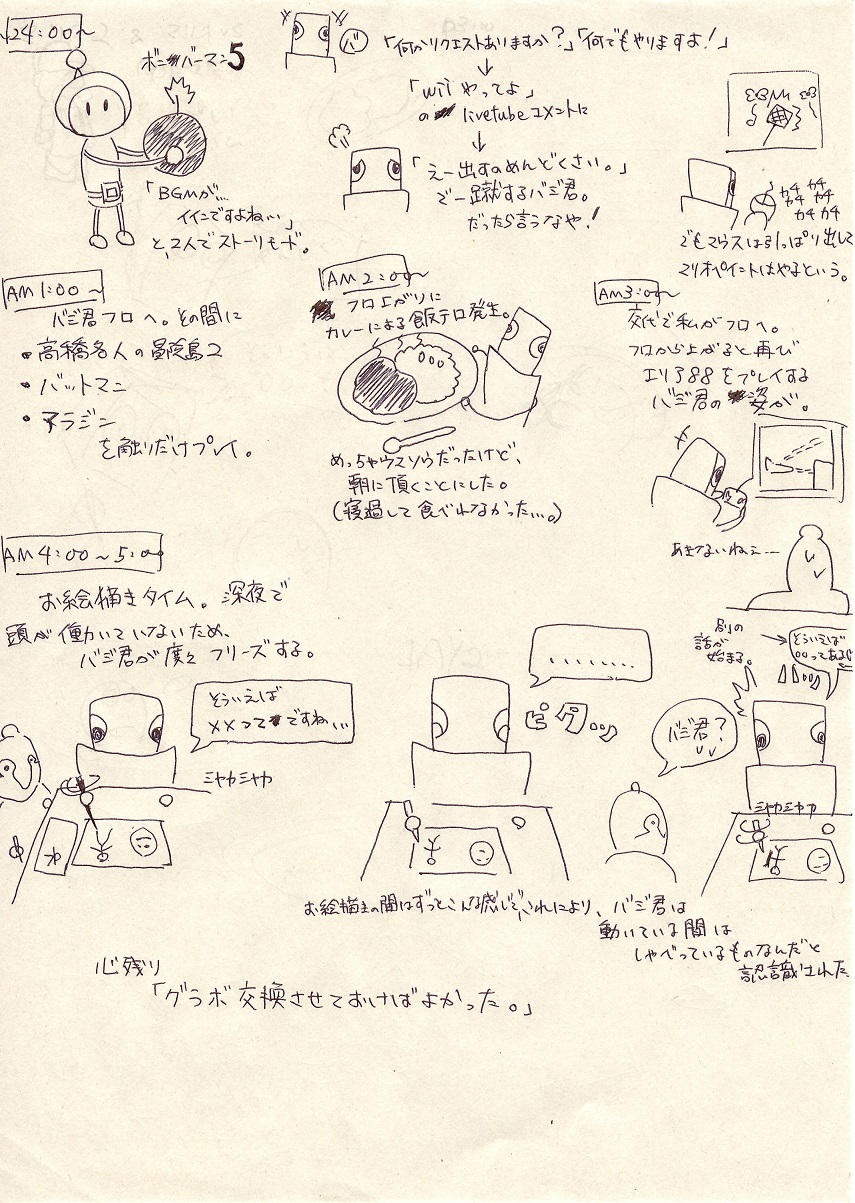 24:00〜
ボンバーマン5
「BGMが…
イイですよねぃ…」
と、2人でストーリモード。
バ
「何かリクエストありますか?」「何でもやりますよ!」
↓
「wii やってよ」
の livetubeコメントに
↓
「えー出すのめんどくさい。」
で一蹴するバジ君。
だったら言うなや!
カチ カチ
カチ カチ
カチ カチ
でもマウスは引っぱり出して
マリオペイントはやるという。
AM1:00〜
バジ君フロへ。その間に
・高橋名人の冒険島2
・バットマン
・アラジン
を触りだけプレイ。
AM2:00〜
フロ上がりに
カレーによる飯テロ発生。
めっちゃウマソウだったけど、
朝に頂くことにした。
(寝過して食べれなかった…。)
AM3:00〜
交代で私がフロへ。
フロから上がると再び
エリア88をプレイする
バジ君の姿が。
あきないねぇ…
AM4:00〜5:00
お絵描きタイム。深夜で
頭が働いていないため、
バジ君が度々フリーズする。
そういえば
××って ですね…
シャカシャカ
........
ピタ…
バジ君?
別の
話が
始まる。
そういえば
○○ってあるじ
シャカシャカ
お絵描きの間はずっとこんな感じで、これにより、バジ君は
動いている間は
しゃべっているものなんだと
認識された
心残り
「グラボ交換させておけばよかった。」